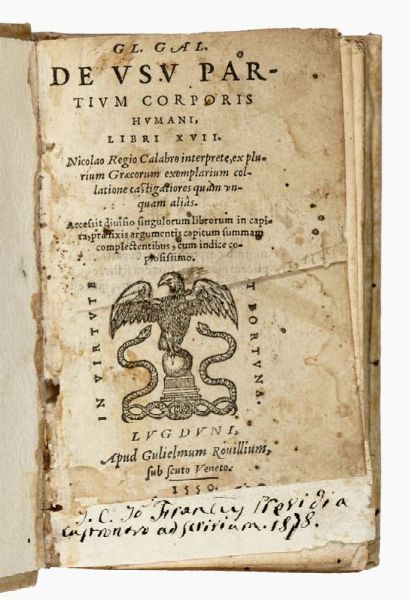 GL. GAL.
DE VSV PAR-
TIVM CORPORIS
HVMANI,
LIBRI XVII.
Nicolao Regio Calabro interprete, ex plu-
rium Græcorum exemplarium col-
latione castigatiores quam vn-
quam aliàs.
Accessit diuisio singulorum librorum in capi-
ta, præfixis argumentis capitum summam
complectentibus, cum indice co-
piosissimo.
IN VIRTVTE
T FORTVNA.
LVGDVNI,
Apud Gulielmum Rouillium,
sub scuto Veneto.
1550.
J. C. Jo
1878.